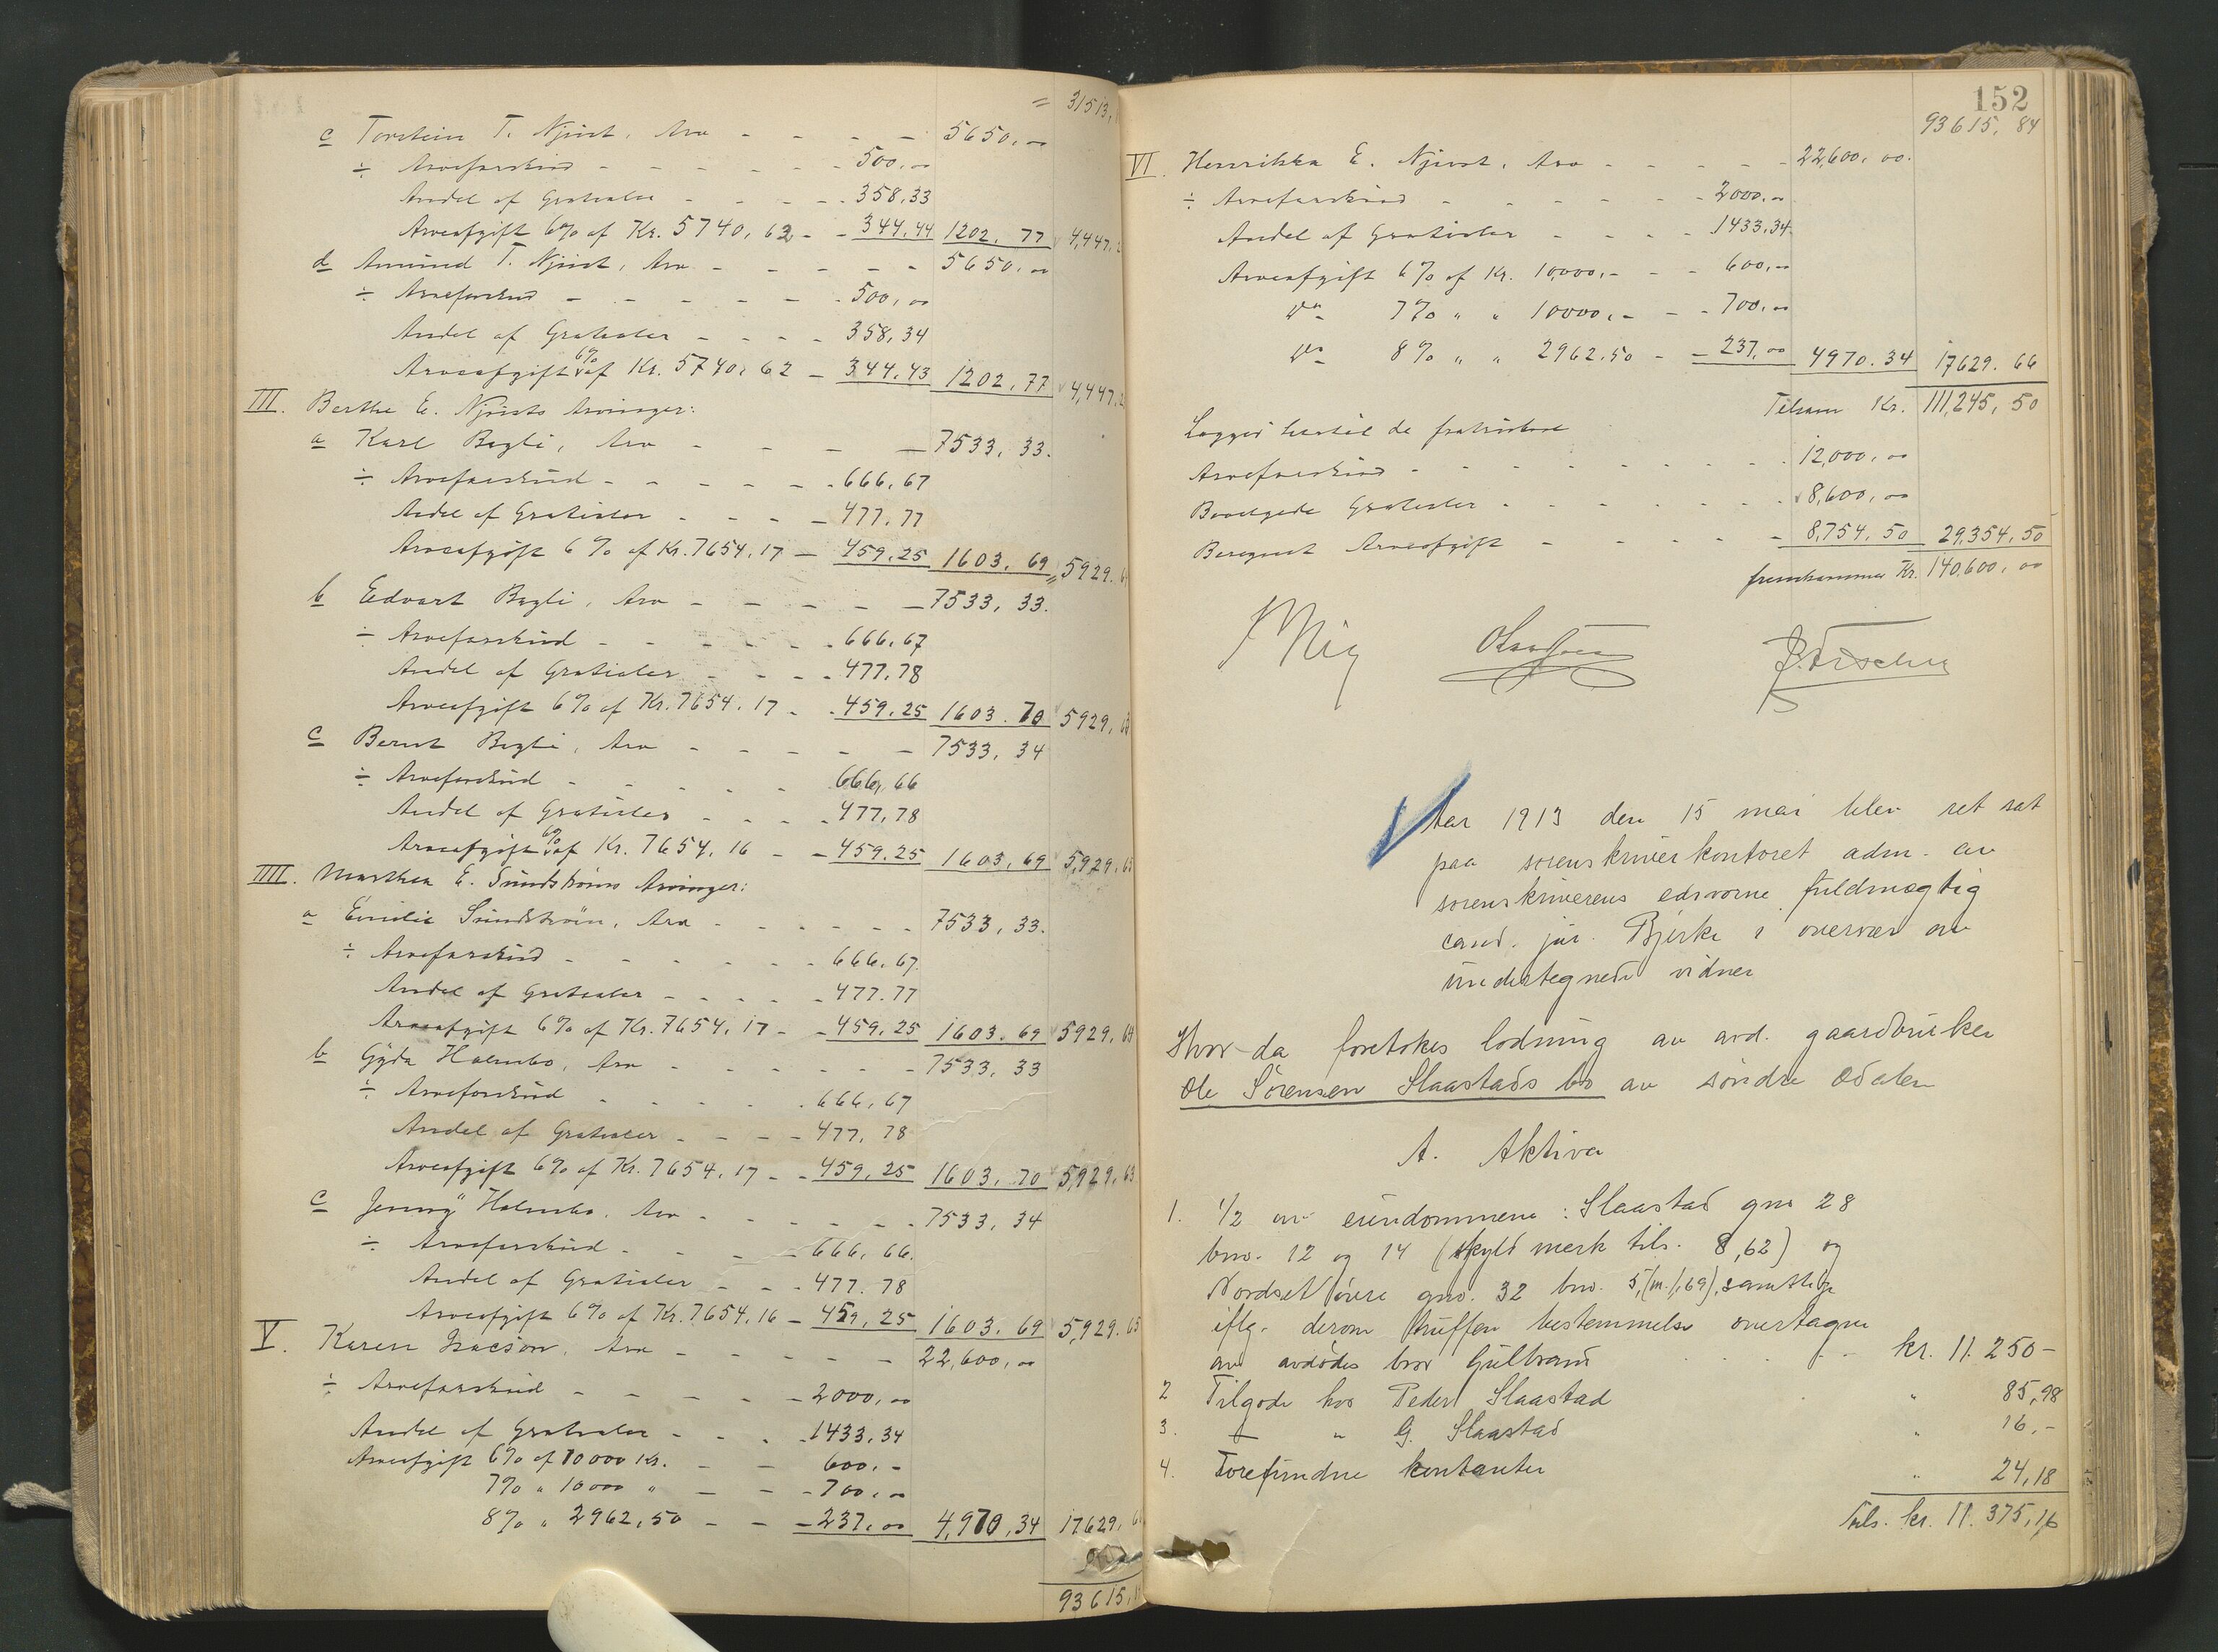 = 31513,
c Torstein T. Njust, Arv - - - - 5650,00
÷ Arveforskud - - - - - - 500,00
Andel af Gratialer - - - - 358,33
Arveafgift 6% af Kr. 5740,62 - - 344,44 1202,77 4,447,2
d Amund T. Njust, Arv - - - - - 5650,00
÷ Arveforskud - - - - - 500,00
Andel af Gratialer - - - - 358,34
Arveafgift 6% af Kr. 5740,62 - 344,43 1202,77 4,447,2
III. Berthe E. Njusts Arvinger:
a Karl Bagli, Arv - - - - 7533,33.
÷ Arveforskud - - - - - 666,67
Andel af Gratialer - - - - 477,77
Arveafgift 6% af Kr. 7654,17 - 459,25 1603,69 5929,6
b Edvart Bagli, Arv - - - - - 7533,33.
÷ Arveforskud - - - - - 666,67
Andel af Gratialer - - - - 477,78
Arveafgift 6% af Kr. 7654,17 - - 459,25 1603.70 5929,63
c Bernt Bagli, Arv - - - - - 7533,34
÷ Arveforskud - - - - - 666,66
Andel af Gratialer - - - - 477,78
Arveafgift 6% af Kr. 7654,16 - - 459,25 1603,69 5,929,65
IIII. Marthea E. Sundstrøms Arvinger:
a Emilie Sundstrøm, Arv - - - - - 7533,33.
÷ Arveforskud - - - - - 666,67
Andel af Gratialer - - - - 477.77
Arveafgift 6% af Kr. 7654,17 - - 459,25 1603.69 5929,64
b Gyda Holmbo, Arv - - - - - 7533,33
÷ Arveforskud - - - - 666,67
Andel af Gratialer - - - - 477,78
Arveafgift 6% af Kr. 7654,17 - - 459,25 1603,70 5,929,63
c Jenny Holmbo, Arv - - - - - 7533,34
÷ Arveforskud - - - - 666,66.
Andel af Gratialer - - - 477.78
Arveafgift 6% af Kr. 7654,16 - 459,25 1603.69 5,929.65
V. Karen Isacson, Arv - - - - - 22,600,00
÷ Arveforskud - - - - - 2000,00
Andel af Gratialer - - - - 1433,34
Arveafgift 6% af 10000 Kr. - - 600.-
7% " 10000 " - - - 700,00
8% " 2962,50 - - - 237,00 4,970,34 17629,6
93615,
152
93615,84
VI. Henrikka E. Njust, Arv - - - - - 22,600,00.
÷ Arveforskud - - - - - - 2000,00
Andel af Gratialer - - - - 1433,34
Arveafgift 6% af Kr. 10000,- - - 600,00
do 7% " " 10000,- - - 700,00
do 8% " " 2962.50 - - 237,00 4970.34 17629.66
Tilsam Kr. 111,245,50
Lægges hertil de fratrukne
Arveforskud - - - - - - - 12,000,00
Bevilgede Gratialer - - - - - - 8,600,00
Beregnet Arveafgift - - - - - 8,754,50 29,354,50
fremkommer Kr. 140,600,00
Aar 1913 den 15 mai blev ret sat
paa sorenskriverkontoret adm. av
sorenskriverens edsvorne fuldmægtig
cand. jur. Bjerke i overvær av
undertegnede vidner
Hvor da foretokes lodning av avd. gaardbruker
Ole Sørensen Slaastads bo av søndre Odalen
A. Aktiva
1. 1/2 av eiendommene: Slaastad gno 28
bno. 12 og 14 (skyld merk tils. 8,62) og
Nordset øvre gno. 32 bno. 5, (m. 1,69), samtlige
iflg. derom truffen bestemmelse overtagne
av avdødes bror Gulbrand - - - kr. 11.250-
2 Tilgode hos Peder Slaastad " 85,98
3. " G. Slaastad " 16,-
4. Forefundne kontanter " 24,18
Tils. kr. 11.375,16